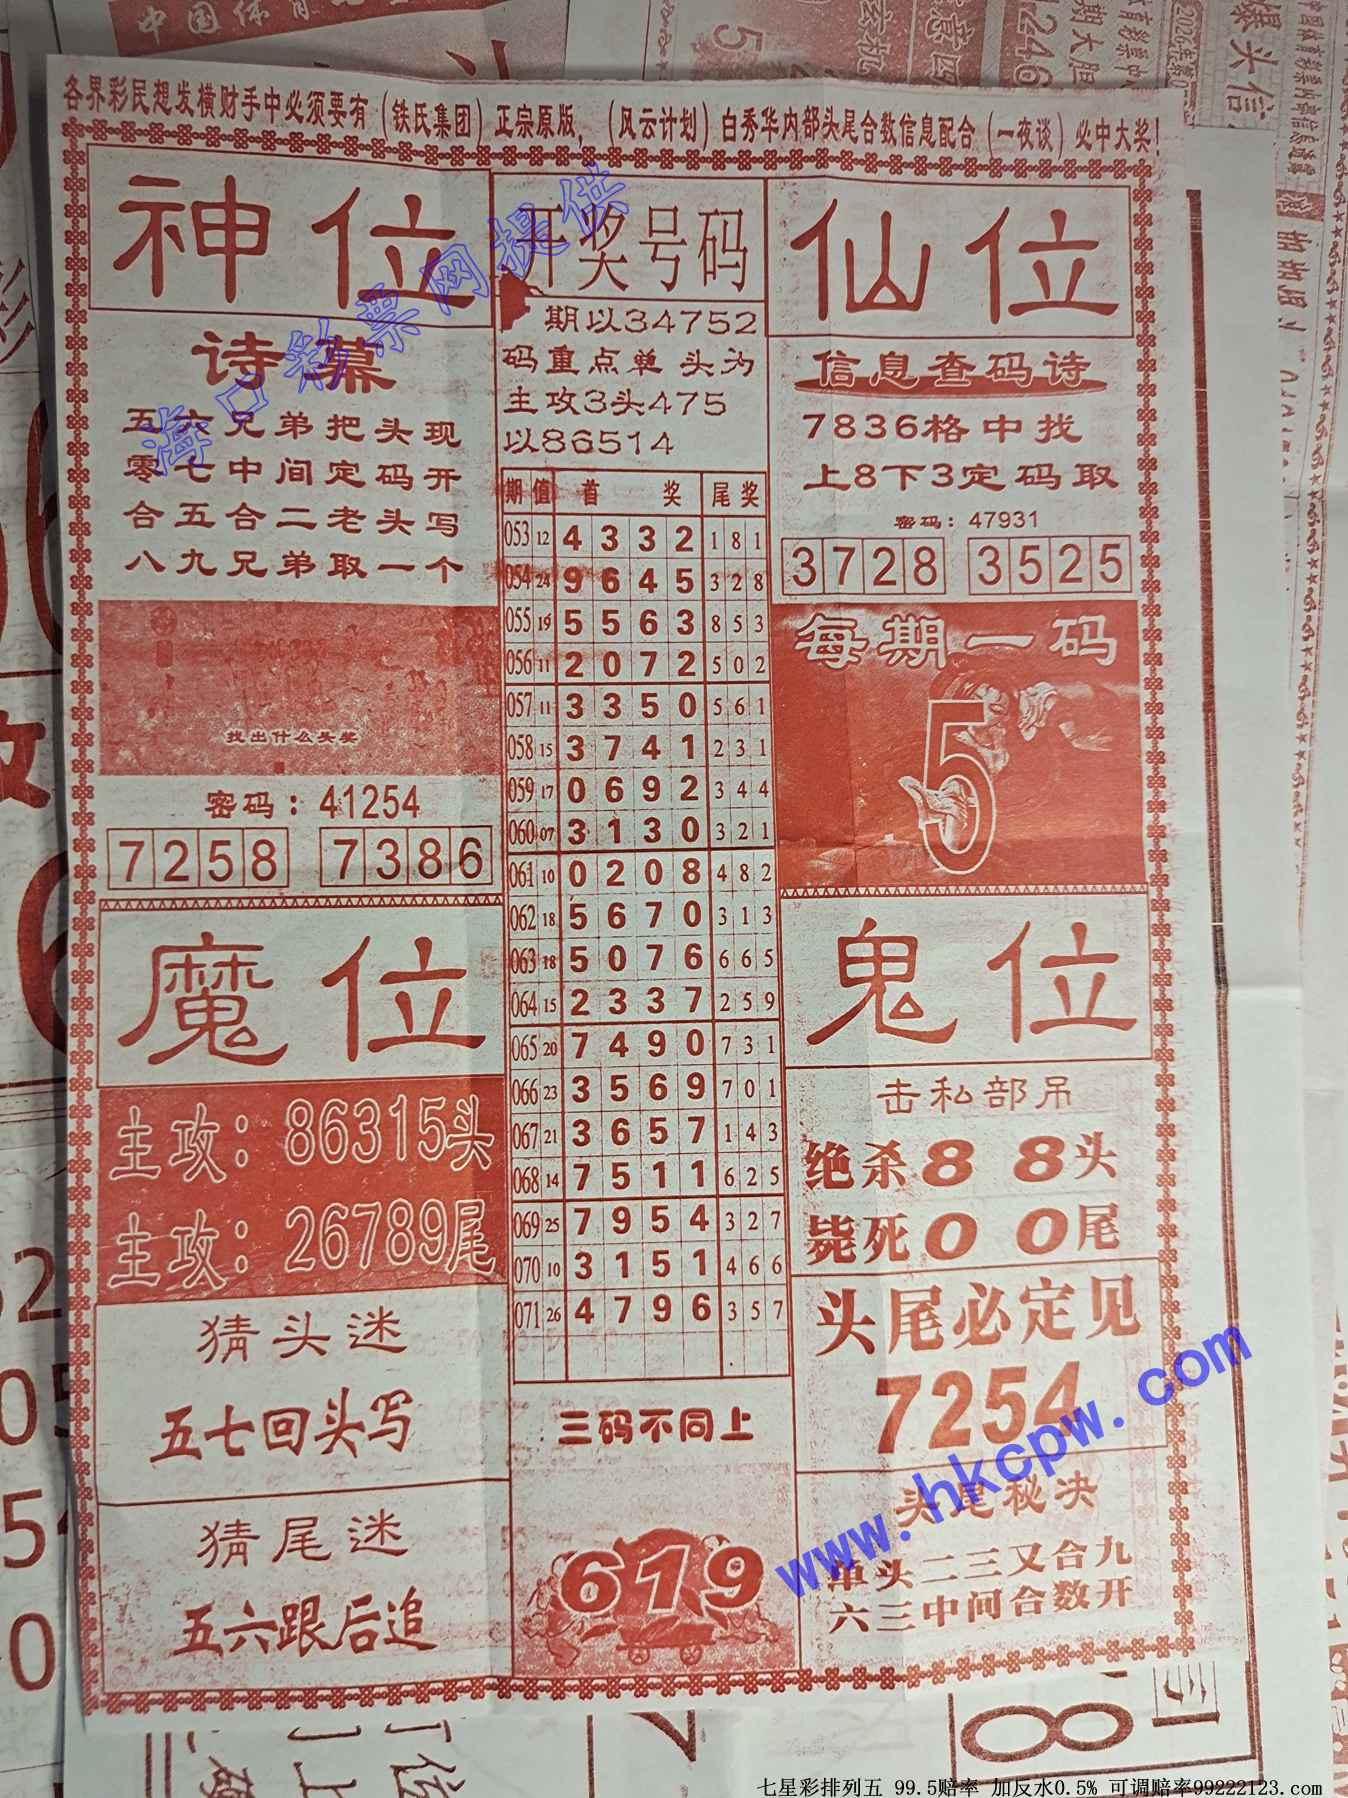 各界彩民想发横财手中必须要有（铁氏集团）正宗原版，（风云计划）白秀华内部头尾合数信息配合（一夜谈）必中大奖！
神位
诗幕
五六兄弟把头现
零七中间定码开
合五合二老头写
八九兄弟取一个
找出什么头奖
密码：41254
7258 7386
魔位
主攻：86315头
主攻：26789尾
猜头迷
五七回头写
猜尾迷
五六跟后追
开奖号码
期以34752
码重点单 头为
主攻3头475
以86514
期 值 首 奖 尾奖
053 12 4 3 3 2 1 8 1
054 24 9 6 4 5 3 2 8
055 19 5 5 6 3 8 5 3
056 11 2 0 7 2 5 0 2
057 11 3 3 5 0 5 6 1
058 15 3 7 4 1 2 3 1
059 17 0 6 9 2 3 4 4
060 07 3 1 3 0 3 2 1
061 10 0 2 0 8 4 8 2
062 18 5 6 7 0 3 1 3
063 18 5 0 7 6 6 6 5
064 15 2 3 3 7 2 5 9
065 20 7 4 9 0 7 3 1
066 23 3 5 6 9 7 0 1
067 21 3 6 5 7 1 4 3
068 14 7 5 1 1 6 2 5
069 25 7 9 5 4 3 2 7
070 10 3 1 5 1 4 6 6
071 26 4 7 9 6 3 5 7
三码不同上
619
仙位
信息查码诗
7836格中找
上8下3定码取
密码：47931
3728 3525
每期一码
5
鬼位
击私部吊
绝杀8 8头
毙死0 0尾
头尾必定见
7254
头尾秘决
单头二三又合九
六三中间合数开
海口彩票网提供
www.hkcpw.com
七星彩排列五 99.5赔率 加反水0.5% 可调赔率99222123.com